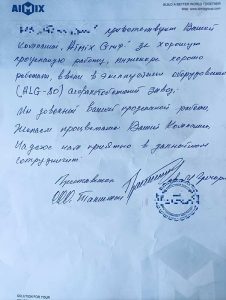 AIMIX
BUILD A BETTER WORLD TOGETHER
приветствует Вашей
Компании, Aimix Group за хорошую
проделанную работу, инженера хорошо
работали, ввели в эксплуатацию оборудование
(ALG-80) асфальтобетонный завод.
Мы довольны вашей проделанной работы,
Желаем процветания Вашей Компании.
нам приятно в дальнейшем
сотрудничать.
ООО
SOLUTION FOR YOUR